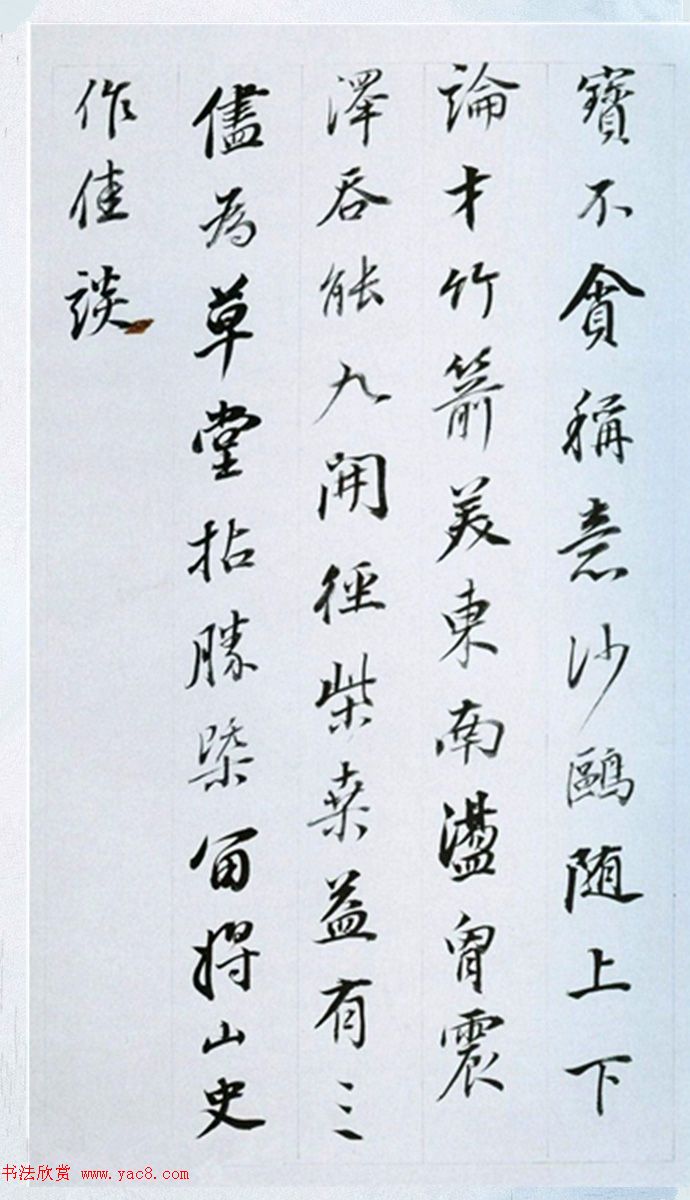 寶不貪稱意沙鷗随上下
論才竹箭美東南盪胷震
澤吞能九開徑柴桑益有三
儘為草堂拈勝槩留將山史
作佳談
书法欣赏 www.yac8.com